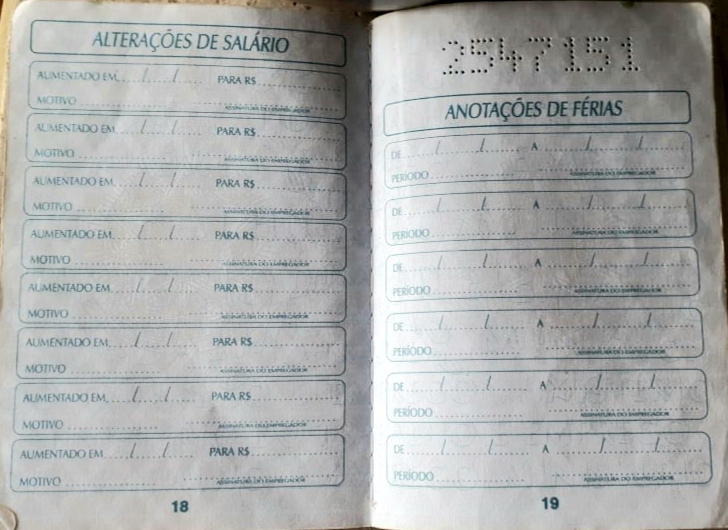 ALTERAÇÕES DE SALÁRIO
AUMENTADO EM......./......./....... PARA R$....................
MOTIVO....................
ASSINATURA DO EMPREGADOR
AUMENTADO EM......./......./....... PARA R$....................
MOTIVO....................
ASSINATURA DO EMPREGADOR
AUMENTADO EM......./......./....... PARA R$....................
MOTIVO....................
ASSINATURA DO EMPREGADOR
AUMENTADO EM......./......./....... PARA R$....................
MOTIVO....................
ASSINATURA DO EMPREGADOR
AUMENTADO EM......./......./....... PARA R$....................
MOTIVO....................
ASSINATURA DO EMPREGADOR
AUMENTADO EM......./......./....... PARA R$....................
MOTIVO....................
ASSINATURA DO EMPREGADOR
AUMENTADO EM......./......./....... PARA R$....................
MOTIVO....................
ASSINATURA DO EMPREGADOR
AUMENTADO EM......./......./....... PARA R$....................
MOTIVO....................
ASSINATURA DO EMPREGADOR
18
2547151
ANOTAÇÕES DE FÉRIAS
DE......./......./....... A......./......./.......
PERÍODO....................
ASSINATURA DO EMPREGADOR
DE......./......./....... A......./......./.......
PERÍODO....................
ASSINATURA DO EMPREGADOR
DE......./......./....... A......./......./.......
PERÍODO....................
ASSINATURA DO EMPREGADOR
DE......./......./....... A......./......./.......
PERÍODO....................
ASSINATURA DO EMPREGADOR
DE......./......./....... A......./......./.......
PERÍODO....................
ASSINATURA DO EMPREGADOR
DE......./......./....... A......./......./.......
PERÍODO....................
ASSINATURA DO EMPREGADOR
19